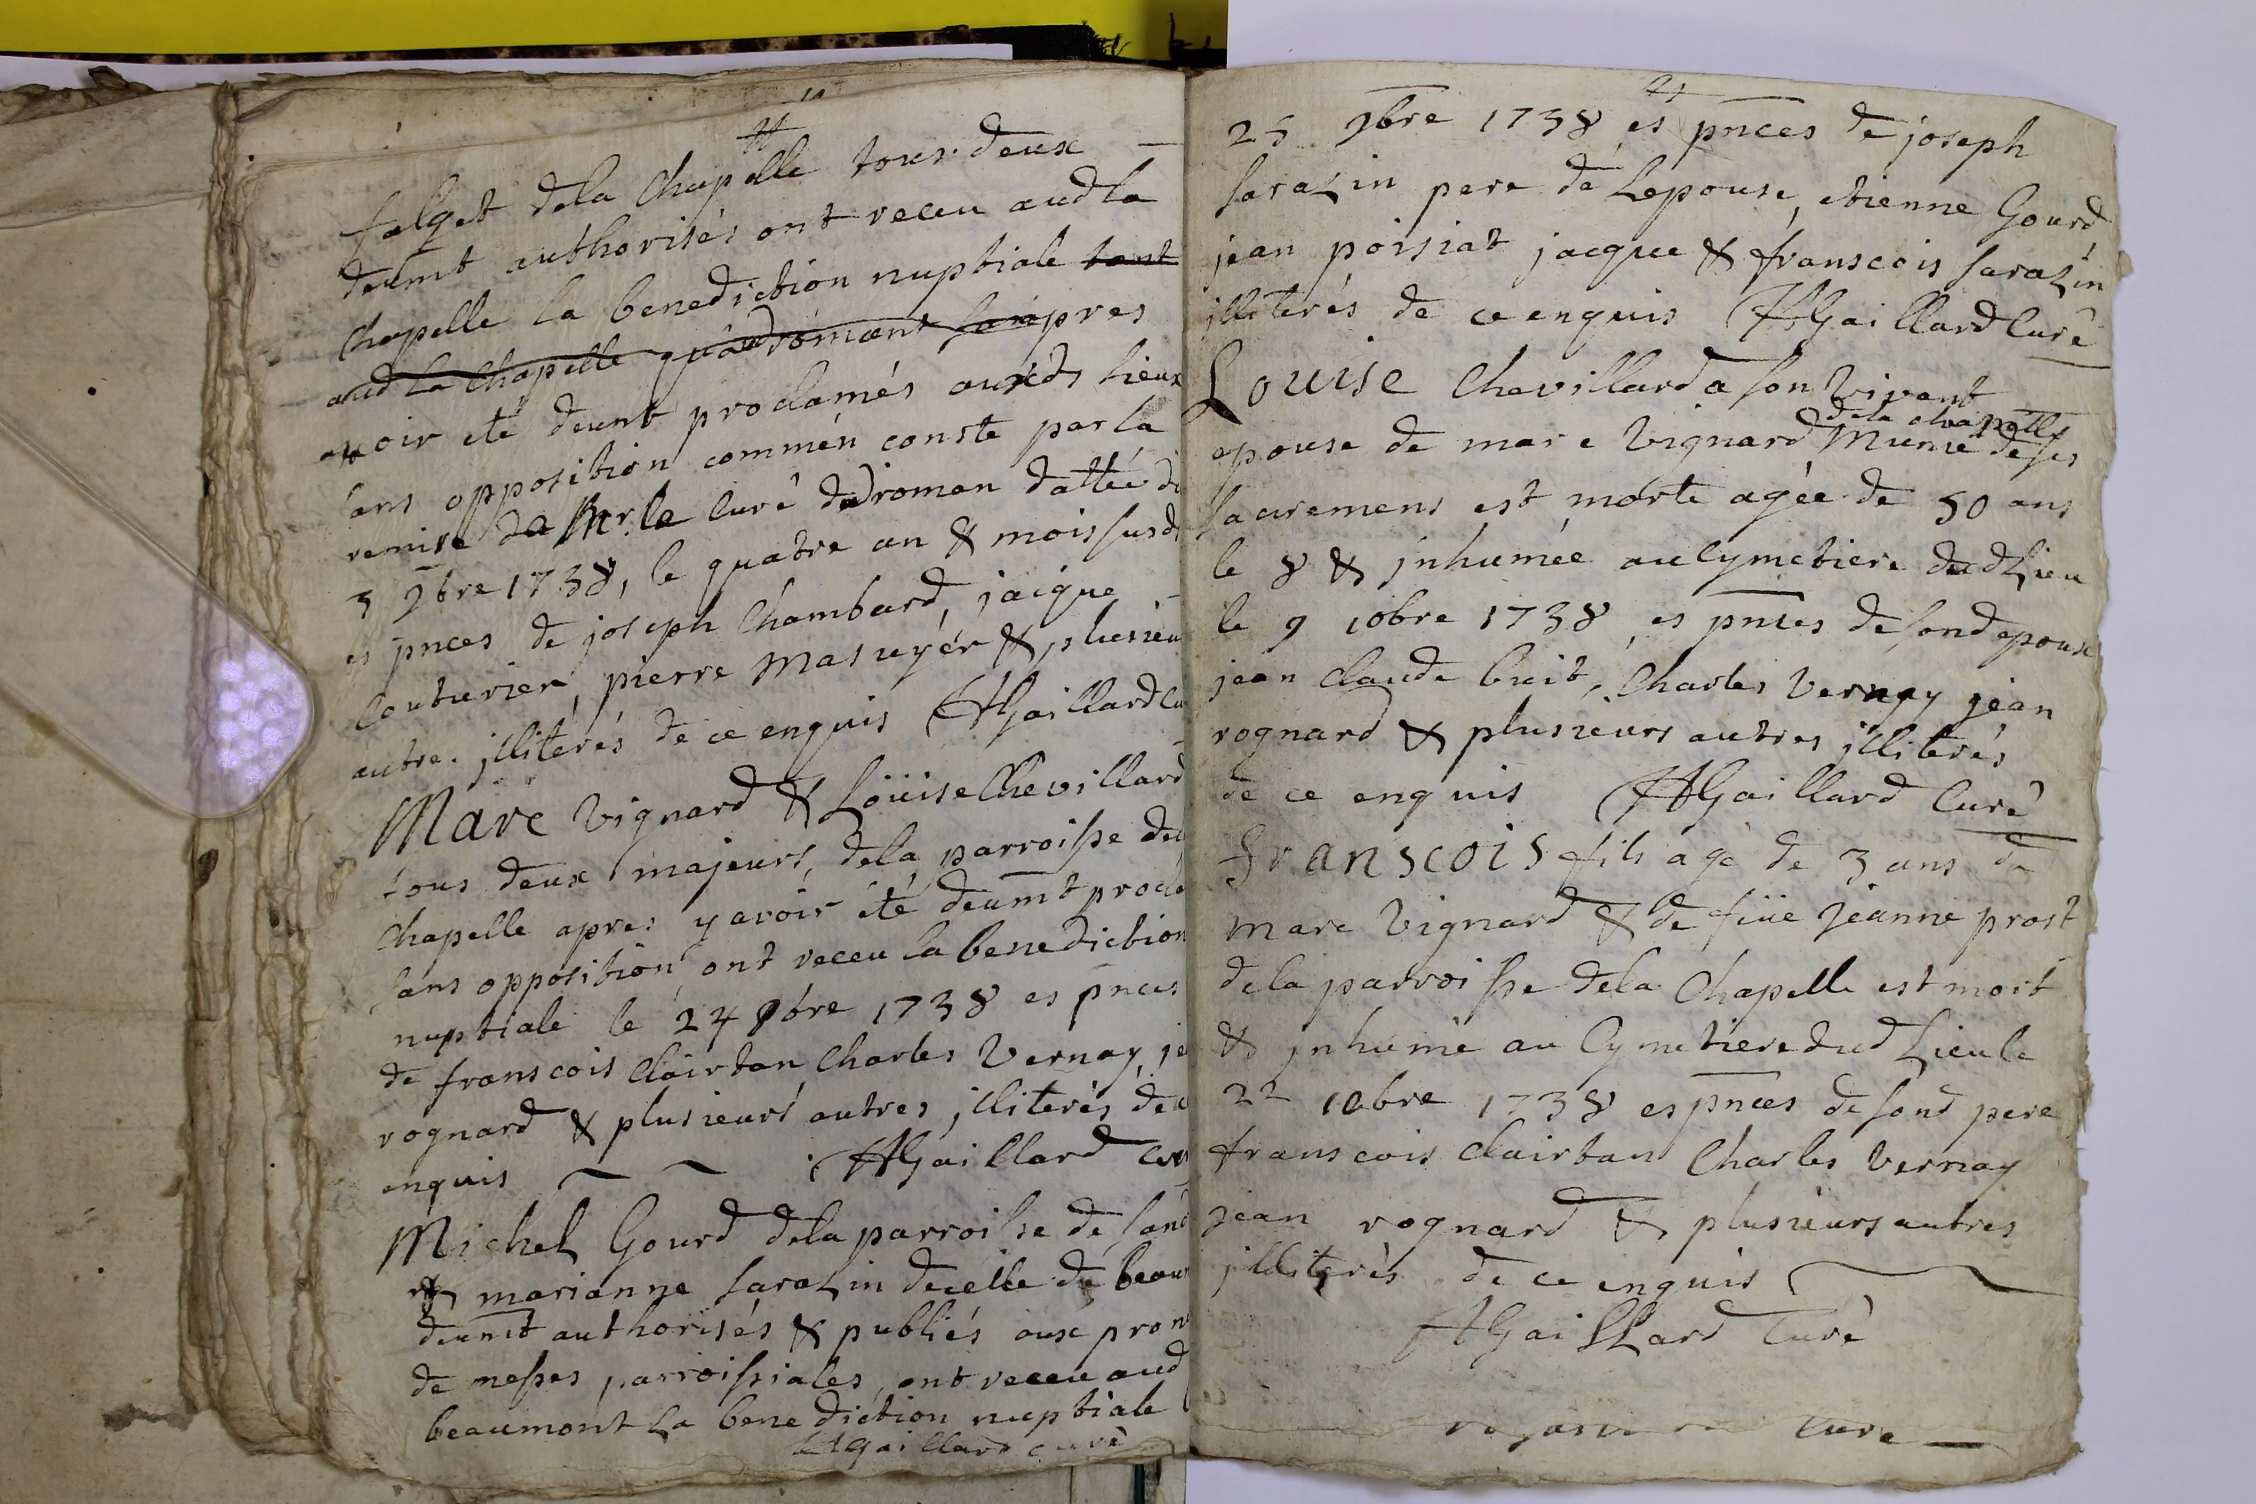 falget dela Chapelle tous deux
deumt authorisés ont receu aud la
Chapelle la benediction nuptiale tant
aud la Chapelle apres
avoir eté deumt proclamés auxds lieux
sans opposition commen conste par la
remise de Mr. le Curé de romon dattée du
3 9bre 1738, le quatre an & mois susd
es pnces de joseph Chambard, jacque
Couturier, pierre Masuyér & plusieu
autre. jlliterés de ce enquis AGaillard Cu
Marc Vignard & Loüise Chevillard
tous deux majeurs, dela parroisse de
Chapelle apres y avoir été deumt procla
sans opposition ont receu la benediction
nuptiale le 24 9bre 1738 es pnces
de franscois Clairtan Charles Vernay, je
rognard & plusieurs autres jlliterés de ce
enquis AGaillard Cur
Michel Gourd dela parroisse de sand
& marianne saraZin decelle de beau
deumt authorisés & publiés aux pron
de messes parroissiales, ont receu aud
beaumont La benediction nuptiale
AGaillard curé
21
25 9bre 1738 es pnces de joseph
saraZin pere de Lepouse, etienne Gourd
jean poisiat jacque & franscois saraZin
jlliterés de ce enquis AGaillard Curé
Louise Chevillard a son Vivant
dela chapelle
epouse de marc Vignard Munie de ses
sacremens est morte agée de 50 ans
le 8 & jnhumée au Cymetiere dud Lieu
le 9 10bre 1738, es pnces de sond epoux
jean Claude buit, Charles Vernay jean
rognard & plusieurs autres jlliterés
de ce enquis AGaillard Curé
franscois fils agé de 3 ans de
marc Vignard & de füe Jeanne prost
dela parroisse dela Chapelle est mort
& jnhumé au Cymetiere dud Lieu le
22 10bre 1738 es pnces de sond pere
franscois Clairtan Charles Vernay
jean rognard & plusieurs autres
jlliterés de ce enquis
AGaillard Curé
Curé